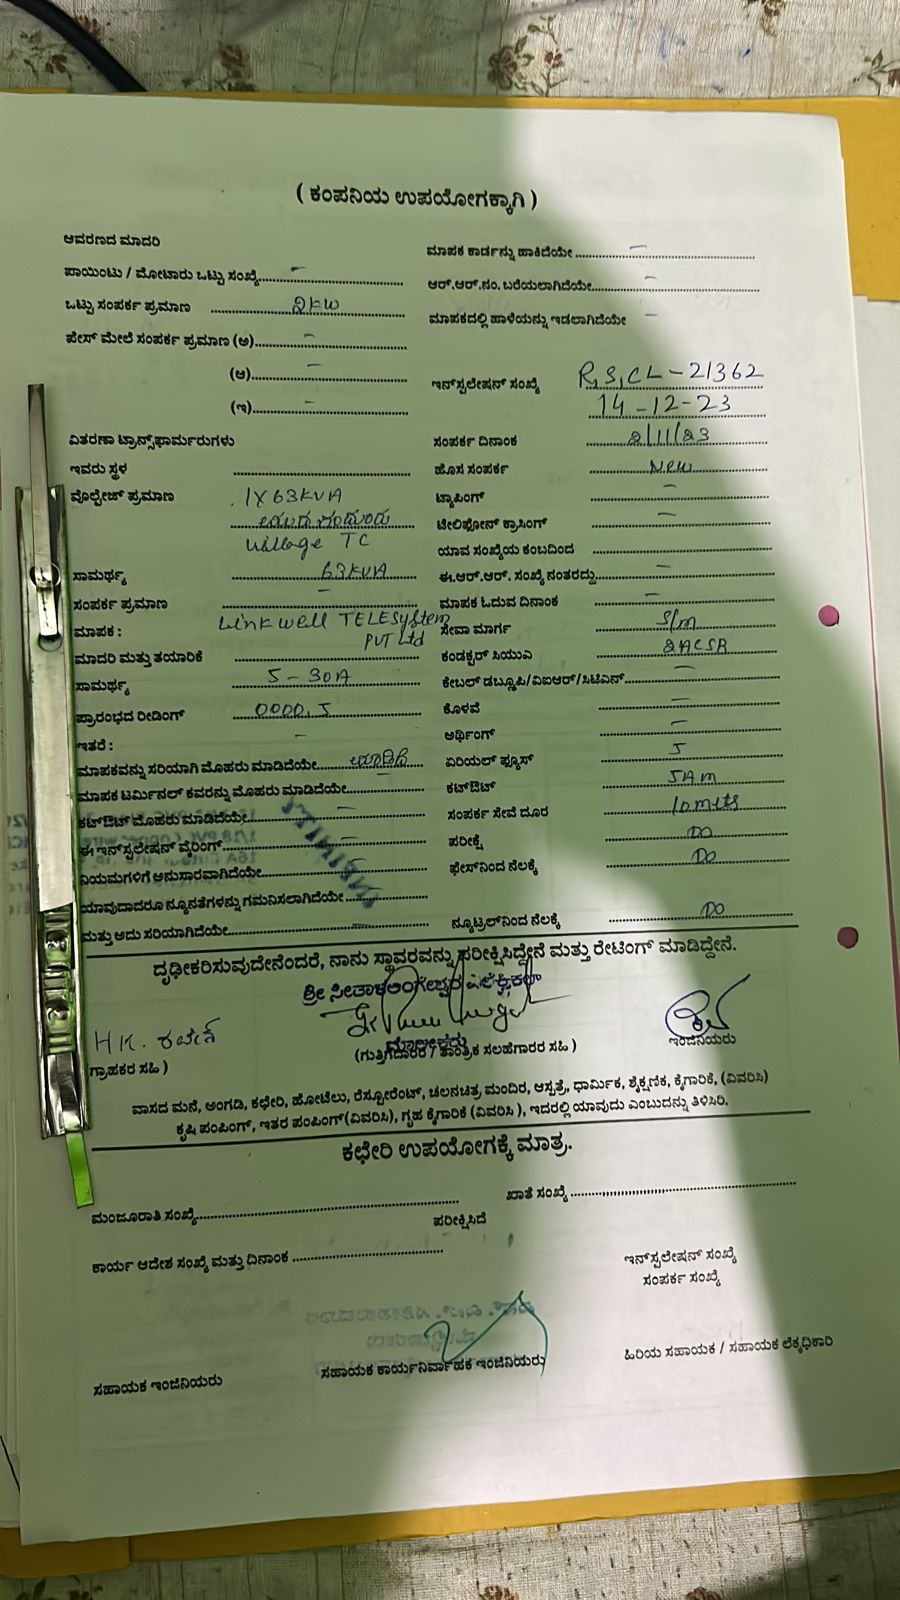 ( ಕಂಪನಿಯ ಉಪಯೋಗಕ್ಕಾಗಿ )
ಆವರಣದ ಮಾದರಿ
ಮಾಪಕ ಕಾರ್ಡನ್ನು ಹಾಕಿದೆಯೇ —
ಪಾಯಿಂಟು / ಮೋಟಾರು ಒಟ್ಟು ಸಂಖ್ಯೆ —
ಆರ್.ಆರ್.ನಂ. ಬರೆಯಲಾಗಿದೆಯೇ —
ಒಟ್ಟು ಸಂಪರ್ಕ ಪ್ರಮಾಣ 2KW
ಮಾಪಕದಲ್ಲಿ ಹಾಳೆಯನ್ನು ಇಡಲಾಗಿದೆಯೇ —
ಪೇಸ್ ಮೇಲೆ ಸಂಪರ್ಕ ಪ್ರಮಾಣ (ಅ) —
(ಆ) —
ಇನ್‌ಸ್ಟಲೇಷನ್ ಸಂಖ್ಯೆ R,S,CL-21362
(ಇ) —
14-12-23
ವಿತರಣಾ ಟ್ರಾನ್ಸ್‌ಫಾರ್ಮರುಗಳು
ಸಂಪರ್ಕ ದಿನಾಂಕ 2/11/23
ಇವರು ಸ್ಥಳ
ಹೊಸ ಸಂಪರ್ಕ New
ವೊಲ್ಟೇಜ್ ಪ್ರಮಾಣ 1X63KVA
ಟ್ಯಾಪಿಂಗ್ —
Village TC
ಟೇಲಿಫೋನ್ ಕ್ರಾಸಿಂಗ್ —
ಯಾವ ಸಂಖ್ಯೆಯ ಕಂಬದಿಂದ
ಸಾಮರ್ಥ್ಯ 63KVA
ಈ.ಆರ್.ಆರ್. ಸಂಖ್ಯೆ ನಂತರದ್ದು —
ಸಂಪರ್ಕ ಪ್ರಮಾಣ —
ಮಾಪಕ ಓದುವ ದಿನಾಂಕ —
ಮಾಪಕ : Linkwell TELESystem
ಸೇವಾ ಮಾರ್ಗ S/m
PVT Ltd
ಮಾದರಿ ಮತ್ತು ತಯಾರಿಕೆ
ಕಂಡಕ್ಟರ್ ಸಿಯುಎ 2ACSR
ಸಾಮರ್ಥ್ಯ 5-30A
ಕೇಬಲ್ ಡಬ್ಲೂಪಿ/ವಿಐಆರ್/ಸಿಟಿಎನ್ —
ಪ್ರಾರಂಭದ ರೀಡಿಂಗ್ 0000.5
ಕೊಳವೆ —
ಇತರೆ : —
ಅರ್ಥಿಂಗ್ —
ಮಾಪಕವನ್ನು ಸರಿಯಾಗಿ ಮೊಹರು ಮಾಡಿದೆಯೇ
ಏರಿಯಲ್ ಫ್ಯೂಸ್ 5
ಮಾಪಕ ಟರ್ಮಿನಲ್ ಕವರನ್ನು ಮೊಹರು ಮಾಡಿದೆಯೇ —
ಕಟ್ಔಟ್ 5Am
ಕಟ್ಔಟ್ ಮೊಹರು ಮಾಡಿದೆಯೇ —
ಸಂಪರ್ಕ ಸೇವೆ ದೂರ 10mts
ಈ ಇನ್‌ಸ್ಟಲೇಷನ್ ವೈರಿಂಗ್ —
ಪರೀಕ್ಷೆ DO
ನಿಯಮಗಳಿಗೆ ಅನುಸಾರವಾಗಿದೆಯೇ
ಫೇಸ್‌ನಿಂದ ನೆಲಕ್ಕೆ DO
ಯಾವುದಾದರೂ ನ್ಯೂನತೆಗಳನ್ನು ಗಮನಿಸಲಾಗಿದೆಯೇ
ಮತ್ತು ಅದು ಸರಿಯಾಗಿದೆಯೇ
ನ್ಯೂಟ್ರಲ್‌ನಿಂದ ನೆಲಕ್ಕೆ DO
ದೃಢೀಕರಿಸುವುದೇನೆಂದರೆ, ನಾನು ಸ್ಥಾವರವನ್ನು ಪರೀಕ್ಷಿಸಿದ್ದೇನೆ ಮತ್ತು ರೇಟಿಂಗ್ ಮಾಡಿದ್ದೇನೆ.
ಶ್ರೀ
ಮಾಲೀಕರು
HK.
ಗ್ರಾಹಕರ ಸಹಿ )
(ಗುತ್ತಿಗೆದಾರರ / ತಾಂತ್ರಿಕ ಸಲಹೆಗಾರರ ಸಹಿ )
ಇಂಜಿನಿಯರು
ವಾಸದ ಮನೆ, ಅಂಗಡಿ, ಕಛೇರಿ, ಹೋಟೆಲು, ರೆಸ್ಟೋರೆಂಟ್, ಚಲನಚಿತ್ರ ಮಂದಿರ, ಆಸ್ಪತ್ರೆ, ಧಾರ್ಮಿಕ, ಶೈಕ್ಷಣಿಕ, ಕೈಗಾರಿಕೆ, (ವಿವರಿಸಿ)
ಕೃಷಿ ಪಂಪಿಂಗ್, ಇತರ ಪಂಪಿಂಗ್(ವಿವರಿಸಿ), ಗೃಹ ಕೈಗಾರಿಕೆ (ವಿವರಿಸಿ ), ಇದರಲ್ಲಿ ಯಾವುದು ಎಂಬುದನ್ನು ತಿಳಿಸಿರಿ.
ಕಛೇರಿ ಉಪಯೋಗಕ್ಕೆ ಮಾತ್ರ.
ಮಂಜೂರಾತಿ ಸಂಖ್ಯೆ
ಖಾತೆ ಸಂಖ್ಯೆ
ಪರೀಕ್ಷಿಸಿದೆ
ಕಾರ್ಯ ಆದೇಶ ಸಂಖ್ಯೆ ಮತ್ತು ದಿನಾಂಕ
ಇನ್‌ಸ್ಟಲೇಷನ್ ಸಂಖ್ಯೆ
ಸಂಪರ್ಕ ಸಂಖ್ಯೆ
ಸಹಾಯಕ ಇಂಜಿನಿಯರು
ಸಹಾಯಕ ಕಾರ್ಯನಿರ್ವಾಹಕ ಇಂಜಿನಿಯರು
ಹಿರಿಯ ಸಹಾಯಕ / ಸಹಾಯಕ ಲೆಕ್ಕಧಿಕಾರಿ